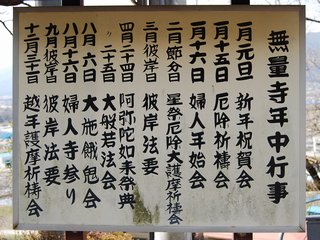 無量寺年中行事
一月元旦 新年祝賀会
一月十五日 厄吟祈檮会
一月十六日 婦人年始会
二月節分日 星祭厄吟大護摩祈檮会
三月彼岸日 彼岸法要
四月二十四日 阿弥陀如来祭典
〃二十五日 大般若法会
八月六日 大施餓鬼会
八月十六日 婦人寺参り
九月彼岸日 彼岸法要
十二月三十日 越年護摩祈檮会